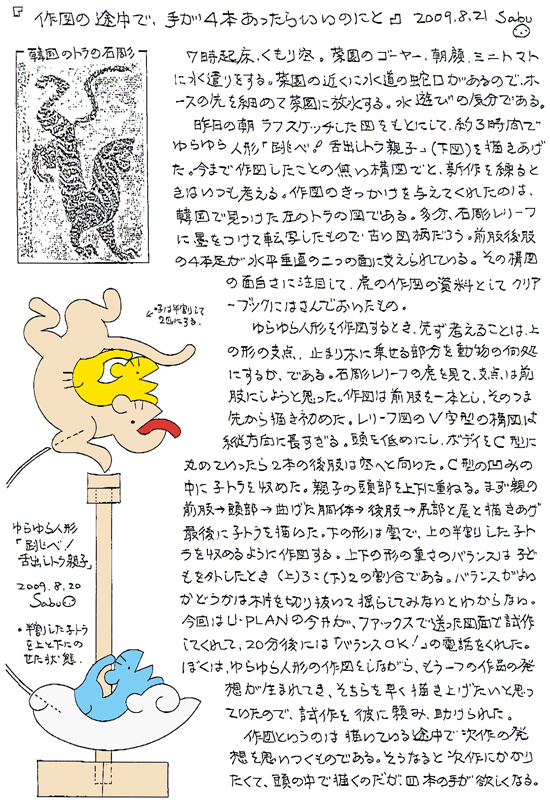 『作図の途中で、手が4本あったらいいのにと』 2009.8.21 Sabu
韓国のトラの石彫
7時起床、くもり空。菜園のゴーヤー、朝顔、ミニトマト
に水遣りをする。菜園の近くに水道の蛇口があるので、ホ
ースの先を細めて菜園に放水する。水遊びの気分である。
昨日の朝ラフスケッチした図をもとにして、約3時間で
ゆらゆら人形「跳べ!舌出しトラ親子」(下図)を描きあげ
た。今まで作図したことの無い構図でと、新作を練ると
きはいつも考える。作図のきっかけを与えてくれたのは、
韓国で見つけた左のトラの図である。多分、石彫レリーフ
に墨をつけて転写したもので古い図柄だろう。前肢後肢
の4本足が水平垂直の二つの面に支えられている。その構図
の面白さに注目して、虎の作図の資料としてクリア
ーブックにはさんでおいたもの。
ゆらゆら人形を作図するとき、先ず考えることは、上
の形の支点、止まり木に乗せる部分を動物の何処
にするか、である。石彫レリーフの虎を見て、支点は前
肢にしようと思った。作図は前肢を一本とし、そのつま
先から描き初めた。レリーフ図のV字型の構図は
縦方向に長すぎる。頭を低めにし、ボディをC型に
丸めていったら2本の後肢は空へと向いた。C型の凹みの
中に子トラを収めた。親子の頭部を上下に重ねる。まず親の
前肢→頭部→曲げた胴体→後肢→尻部と尾と描きあげ
最後に子トラを描いた。下の形は雲で、上の半割りした子ト
ラを収めるように作図する。上下の形の重さのバランスは子ど
もを外したとき(上)3:(下)2の割合である。バランスがよい
かどうかは木片を切り抜いて揺らしてみないとわからない。
今回はU-PLANの今井が、ファックスで送った図面で試作
してくれて、20分後には「バランスOK!」の電話をくれた。
ぼくは、ゆらゆら人形の作図をしながら、もう一つの作品の発
想が生まれてき、そちらを早く描き上げたいと思っ
ていたので、試作を彼に頼み、助けられた。
作図というのは描いている途中で次作の発
想を思いつくものである。そうなると次作にかかり
たくて、頭の中で描くのだが、四本の手が欲しくなる。
←子は半割りして
2図にする.
ゆらゆら人形
「跳べ!
舌出しトラ親子」
2009.8.20
Sabu
・半割した子トラ
を上と下にの
せた状態.